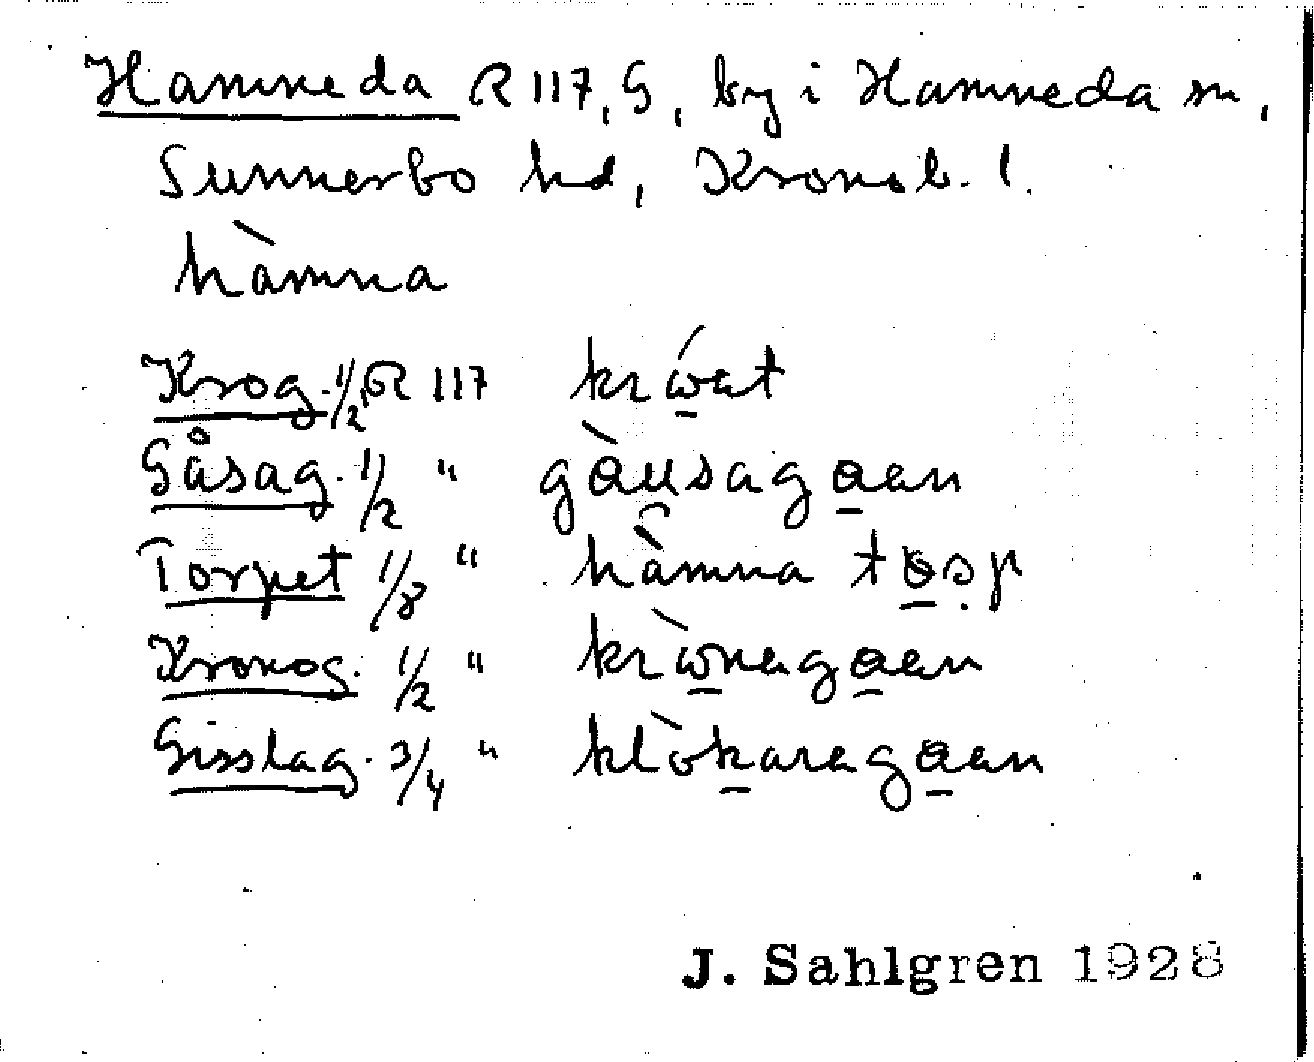 Hamneda R 117, G, by i Hamneda sn,
Sunnerbo hd, Kronob. l.
hàmna
Krog. 1/2 R 117 krẃet
Gåsag. 1/2 " gàusagaen
Torpet 1/8 " hàmna tosp
Kronog. 1/2 " krẁnegaen
Gisslag. 3/4 " klòkaregaen
J. Sahlgren 1928